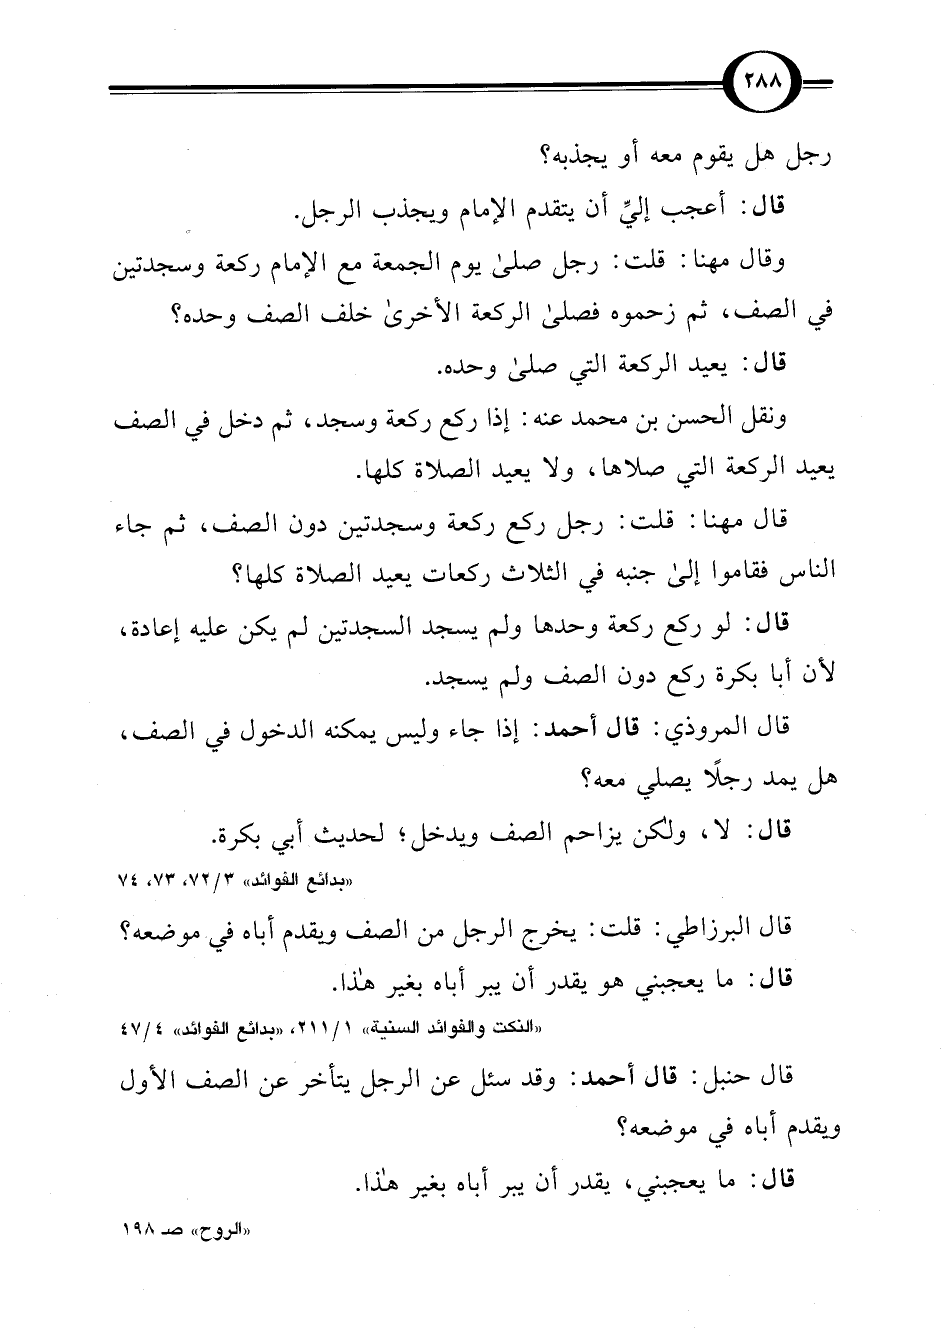 ٢٨٨
رجل هل يقوم معه أو يجذبه؟
قال: أعجب إليَّ أن يتقدم الإمام ويجذب الرجل.
وقال مهنا: قلت: رجل صلىٰ يوم الجمعة مع الإمام ركعة وسجدتين
في الصف، ثم زحموه فصلىٰ الركعة الأخرىٰ خلف الصف وحده؟
قال: يعيد الركعة التي صلىٰ وحده.
ونقل الحسن بن محمد عنه: إذا ركع ركعة وسجد، ثم دخل في الصف
يعيد الركعة التي صلاها، ولا يعيد الصلاة كلها.
قال مهنا: قلت: رجل ركع ركعة وسجدتين دون الصف، ثم جاء
الناس فقاموا إلىٰ جنبه في الثلاث ركعات يعيد الصلاة كلها؟
قال: لو ركع ركعة وحدها ولم يسجد السجدتين لم يكن عليه إعادة،
لأن أبا بكرة ركع دون الصف ولم يسجد.
قال المروذي: قال أحمد: إذا جاء وليس يمكنه الدخول في الصف،
هل يمد رجلًا يصلي معه؟
قال: لا، ولكن يزاحم الصف ويدخل؛ لحديث أبي بكرة.
«بدائع الفوائد» ٣/ ٧٢، ٧٣، ٧٤
قال البرزاطي: قلت: يخرج الرجل من الصف ويقدم أباه في موضعه؟
قال: ما يعجبني هو يقدر أن يبر أباه بغير هـٰذا.
«النكت والفوائد السنية» ١/ ٢١١، «بدائع الفوائد» ٤/ ٤٧
قال حنبل: قال أحمد: وقد سئل عن الرجل يتأخر عن الصف الأول
ويقدم أباه في موضعه؟
قال: ما يعجبني، يقدر أن يبر أباه بغير هـٰذا.
«الروح» صـ ١٩٨